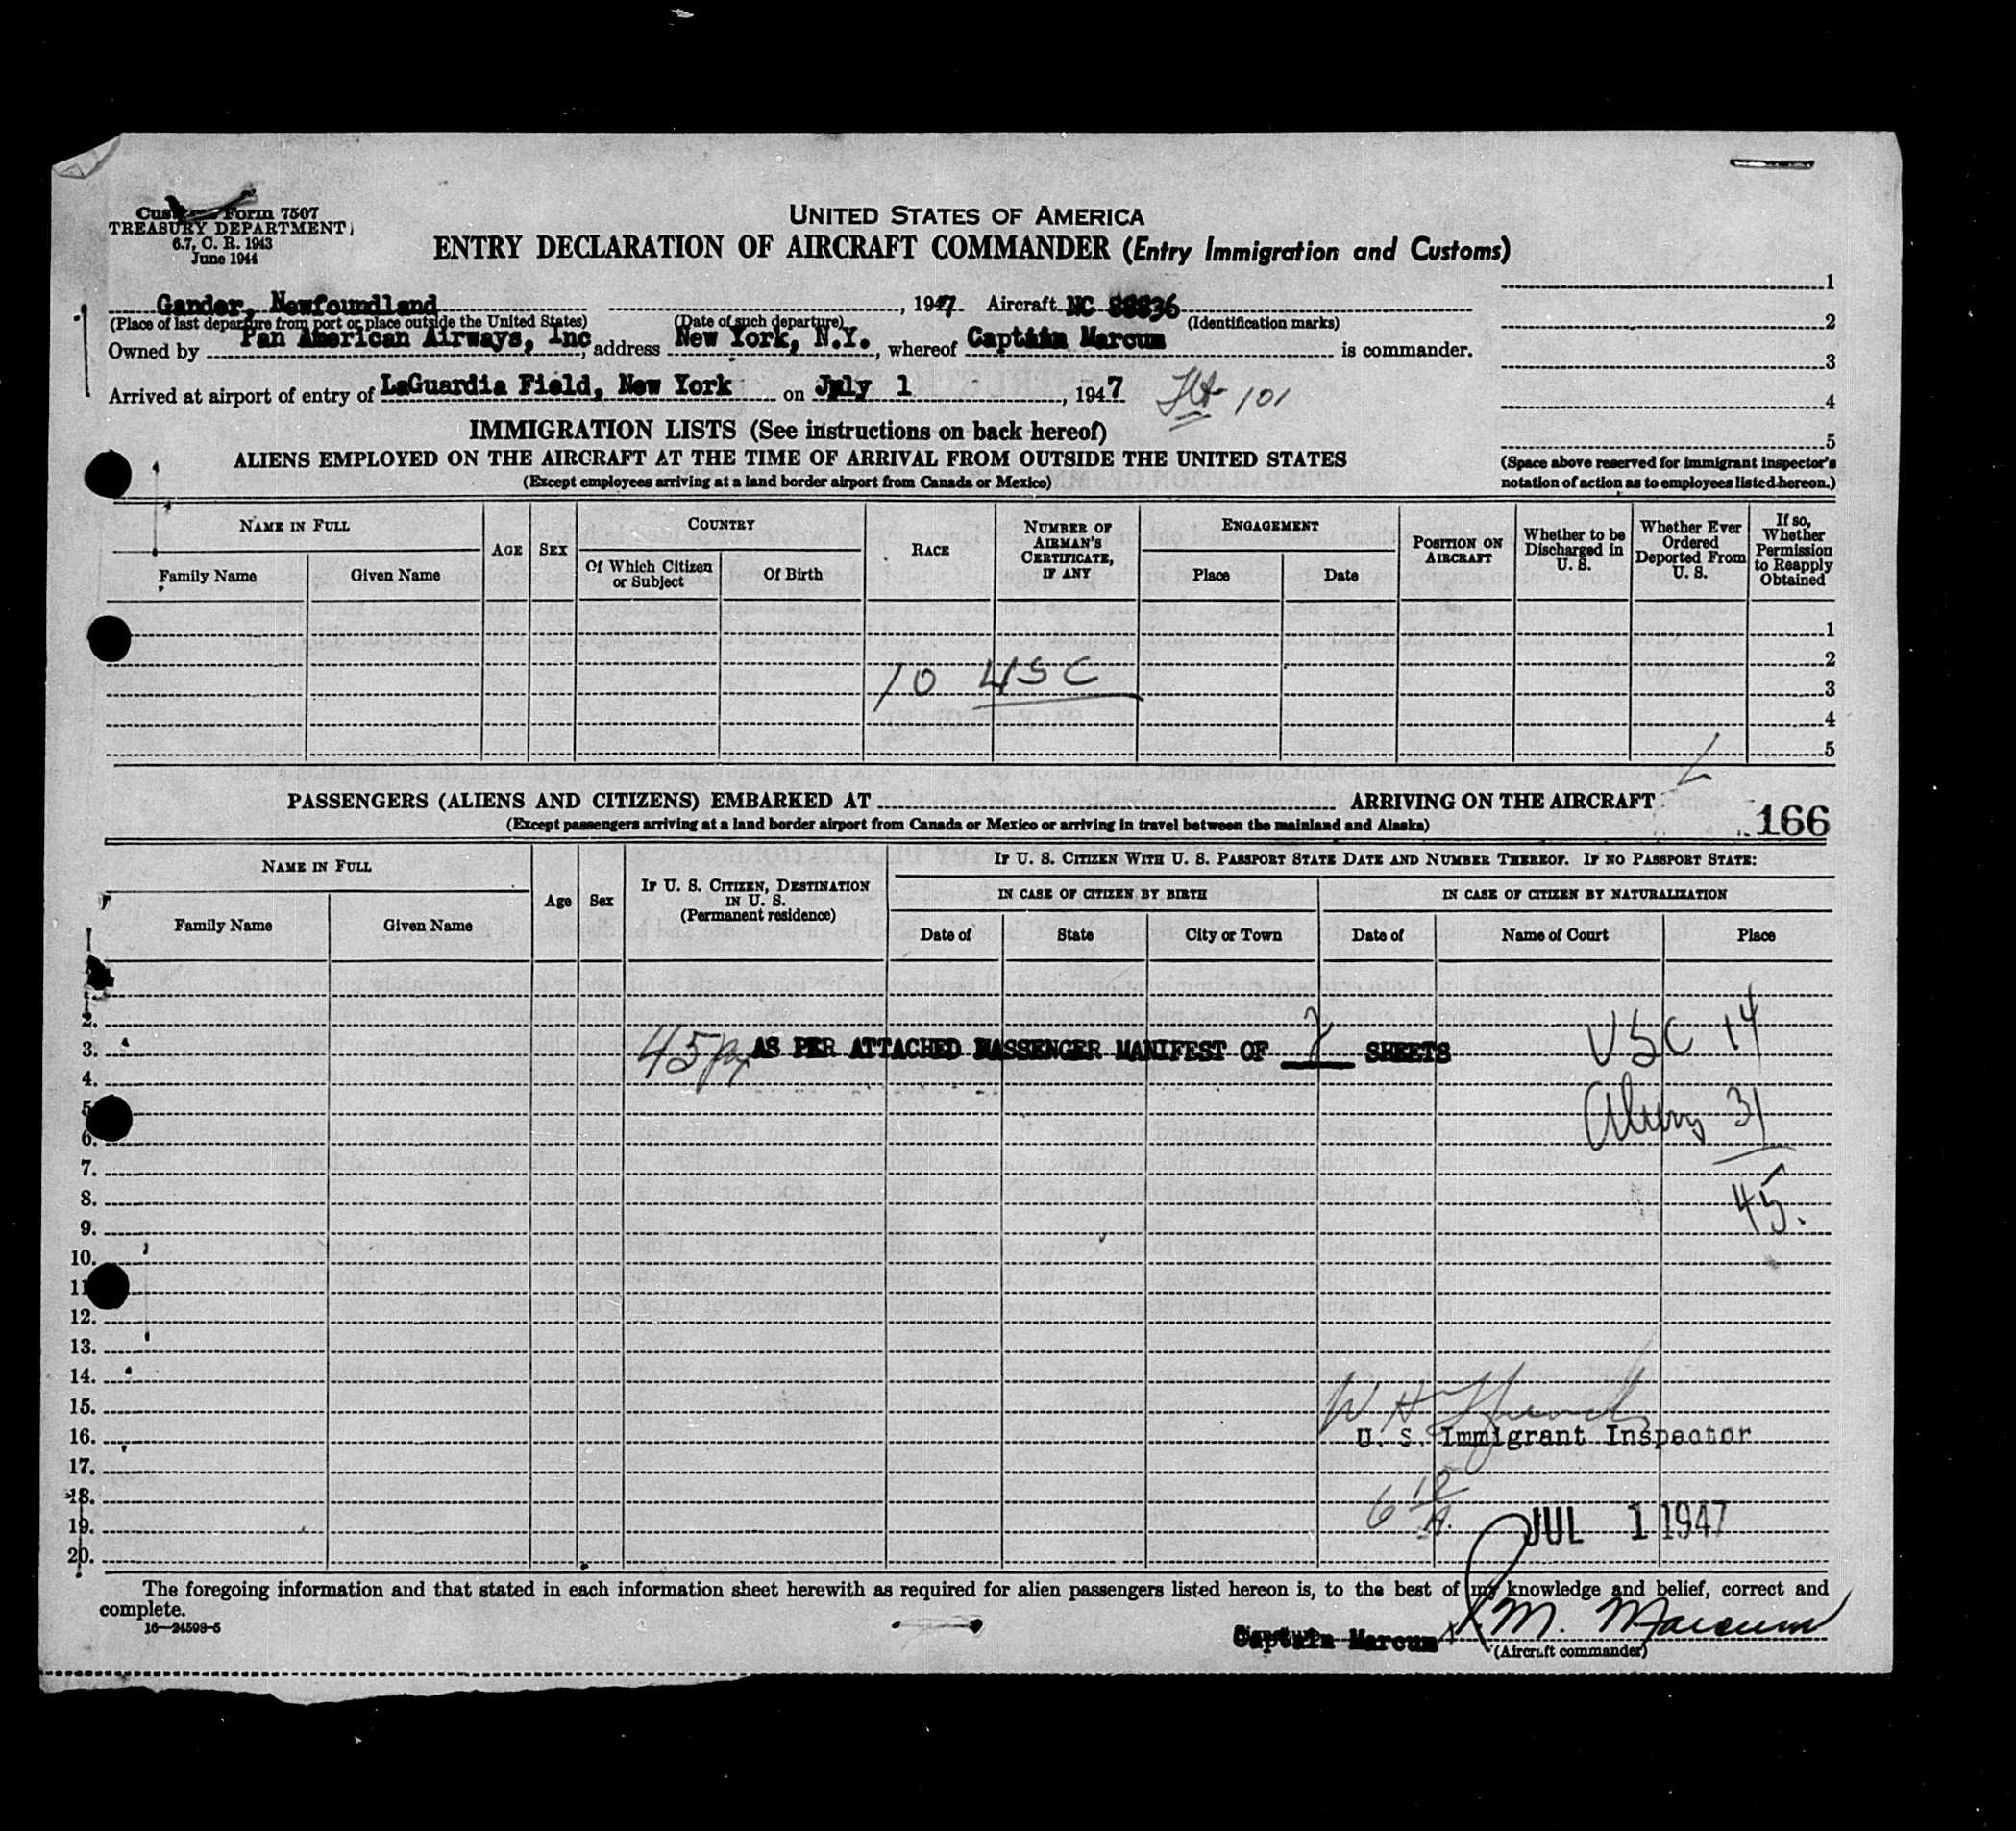 Customs Form 7507
TREASURY DEPARTMENT
6.7, C. R. 1943
June 1944
UNITED STATES OF AMERICA
ENTRY DECLARATION OF AIRCRAFT COMMANDER (Entry Immigration and Customs)
Gander, Newfoundland , 1947 Aircraft NC 88836
(Place of last departure from port or place outside the United States) (Date of such departure) (Identification marks)
Owned by Pan American Airways, Inc, address New York, N.Y., whereof Captain Marcum is commander.
Arrived at airport of entry of LaGuardia Field, New York on July 1, 1947 Flt 101
1
2
3
4
5
(Space above reserved for immigrant inspector's
notation of action as to employees listed hereon.)
IMMIGRATION LISTS (See instructions on back hereof)
ALIENS EMPLOYED ON THE AIRCRAFT AT THE TIME OF ARRIVAL FROM OUTSIDE THE UNITED STATES
(Except employees arriving at a land border airport from Canada or Mexico)
NAME IN FULL
Family Name
Given Name
AGE
SEX
COUNTRY
Of Which Citizen
or Subject
Of Birth
RACE
NUMBER OF
AIRMAN'S
CERTIFICATE,
IF ANY
ENGAGEMENT
Place
Date
POSITION ON
AIRCRAFT
Whether to be
Discharged in
U. S.
Whether Ever
Ordered
Deported From
U. S.
If so,
Whether
Permission
to Reapply
Obtained
1
2
10 USC 3
4
5
PASSENGERS (ALIENS AND CITIZENS) EMBARKED AT ARRIVING ON THE AIRCRAFT
(Except passengers arriving at a land border airport from Canada or Mexico or arriving in travel between the mainland and Alaska)
166
NAME IN FULL
Family Name
Given Name
Age
Sex
IF U. S. CITIZEN, DESTINATION
IN U. S.
(Permanent residence)
IF U. S. CITIZEN WITH U. S. PASSPORT STATE DATE AND NUMBER THEREOF. IF NO PASSPORT STATE:
IN CASE OF CITIZEN BY BIRTH
Date of
State
City or Town
IN CASE OF CITIZEN BY NATURALIZATION
Date of
Name of Court
Place
2.
3. 45 px AS PER ATTACHED PASSENGER MANIFEST OF 2 SHEETS USC 14
4.
5. Aliens 31
6.
7.
8. 45.
9.
10.
11
12.
13.
14.
15. W H
16. U. S. Immigrant Inspector
17.
18.
19. JUL 1 1947
20.
The foregoing information and that stated in each information sheet herewith as required for alien passengers listed hereon is, to the best of my knowledge and belief, correct and
complete.
16—24598-5
Captain Marcum M. Marcum
(Aircraft commander)